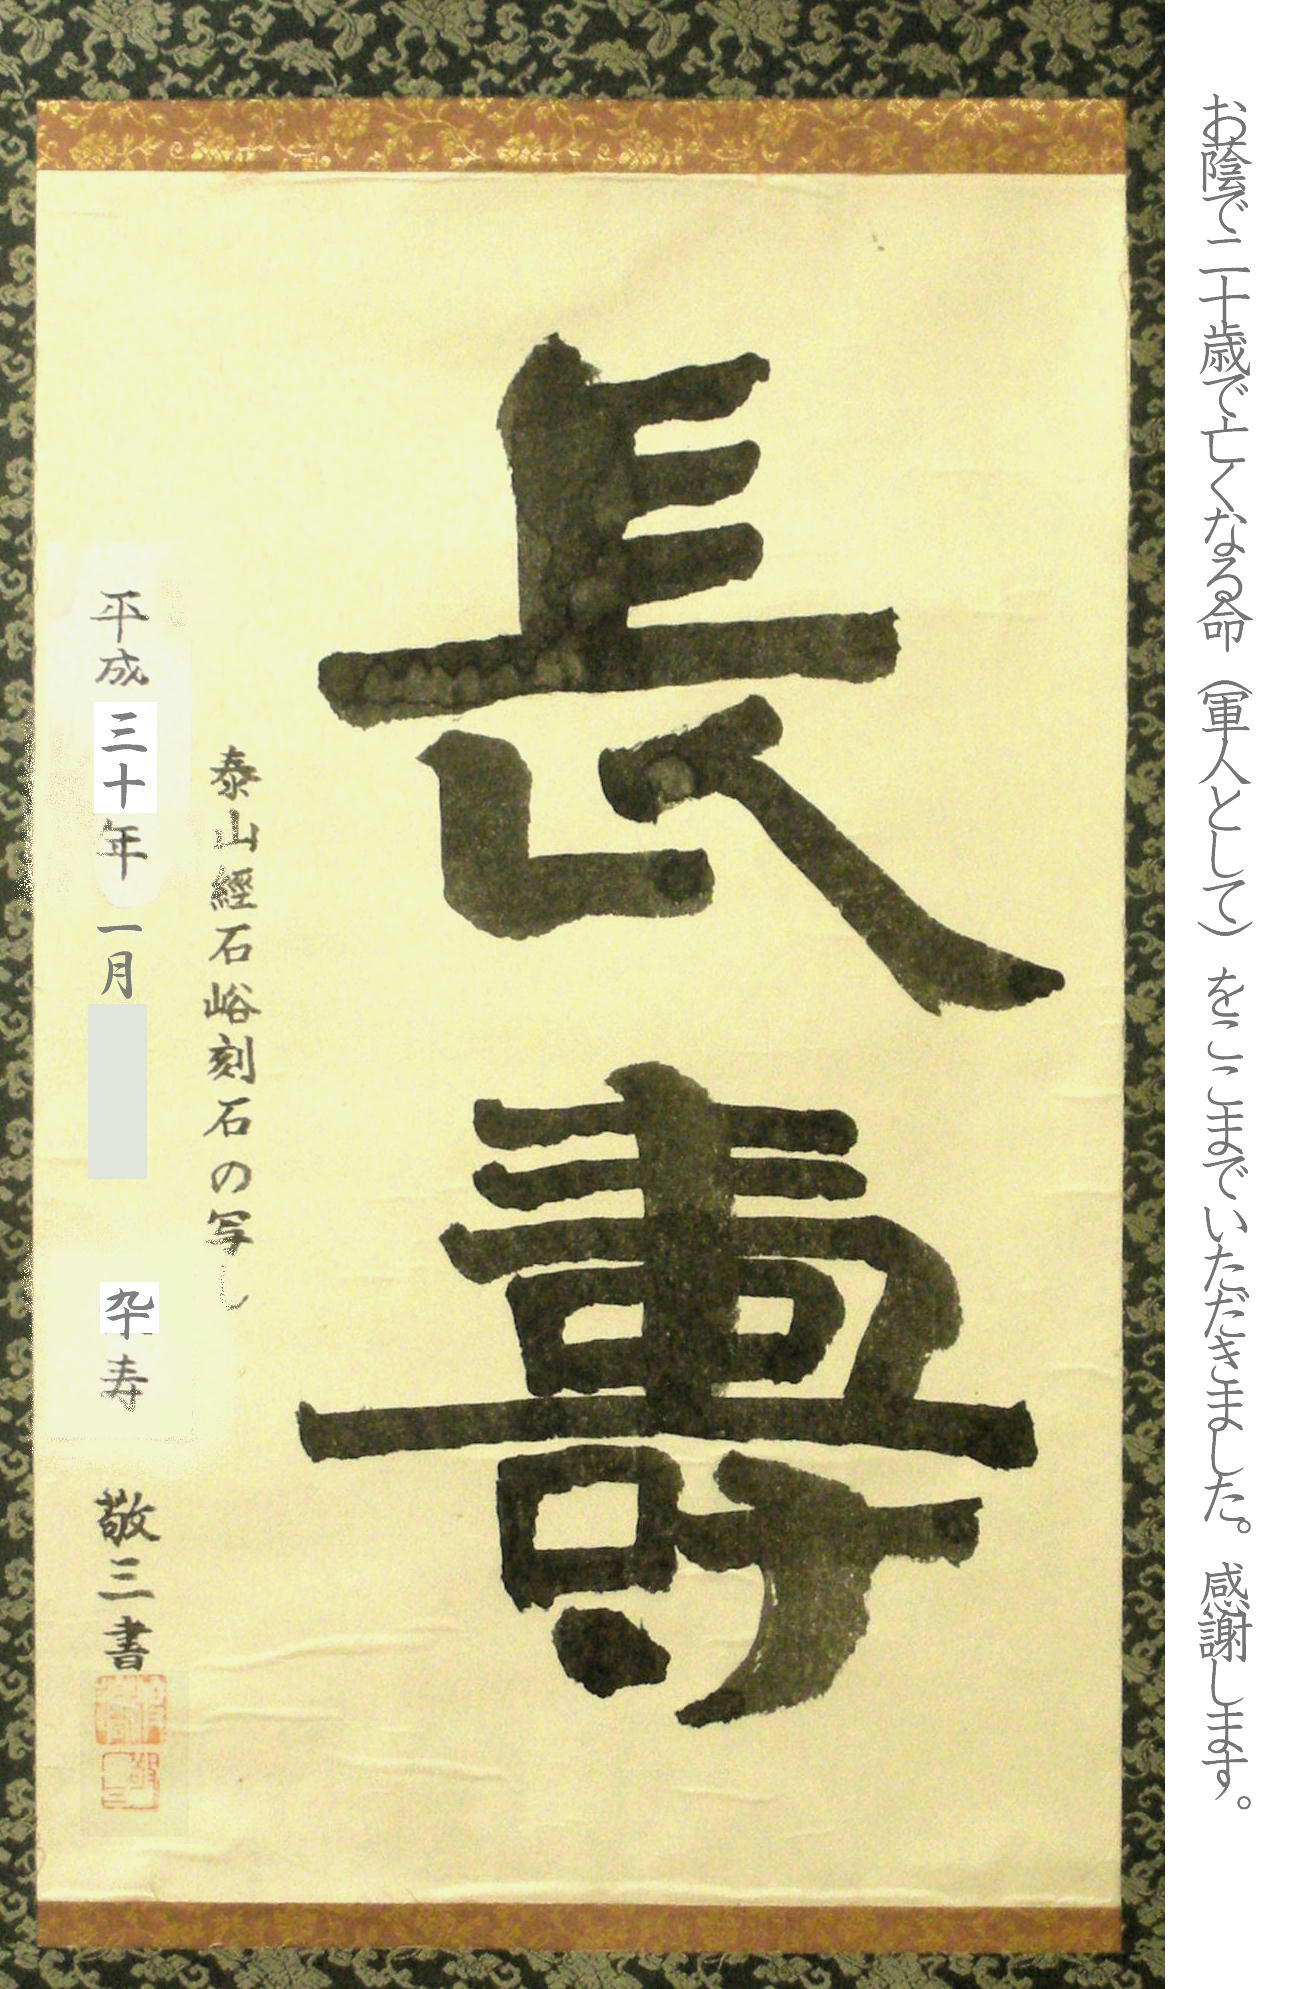 お蔭で二十歳で亡くなる命（軍人として）をここまでいただきました。感謝します。
長壽
泰山經石峪刻石の写し
平成三十年一月 卆寿 敬三書